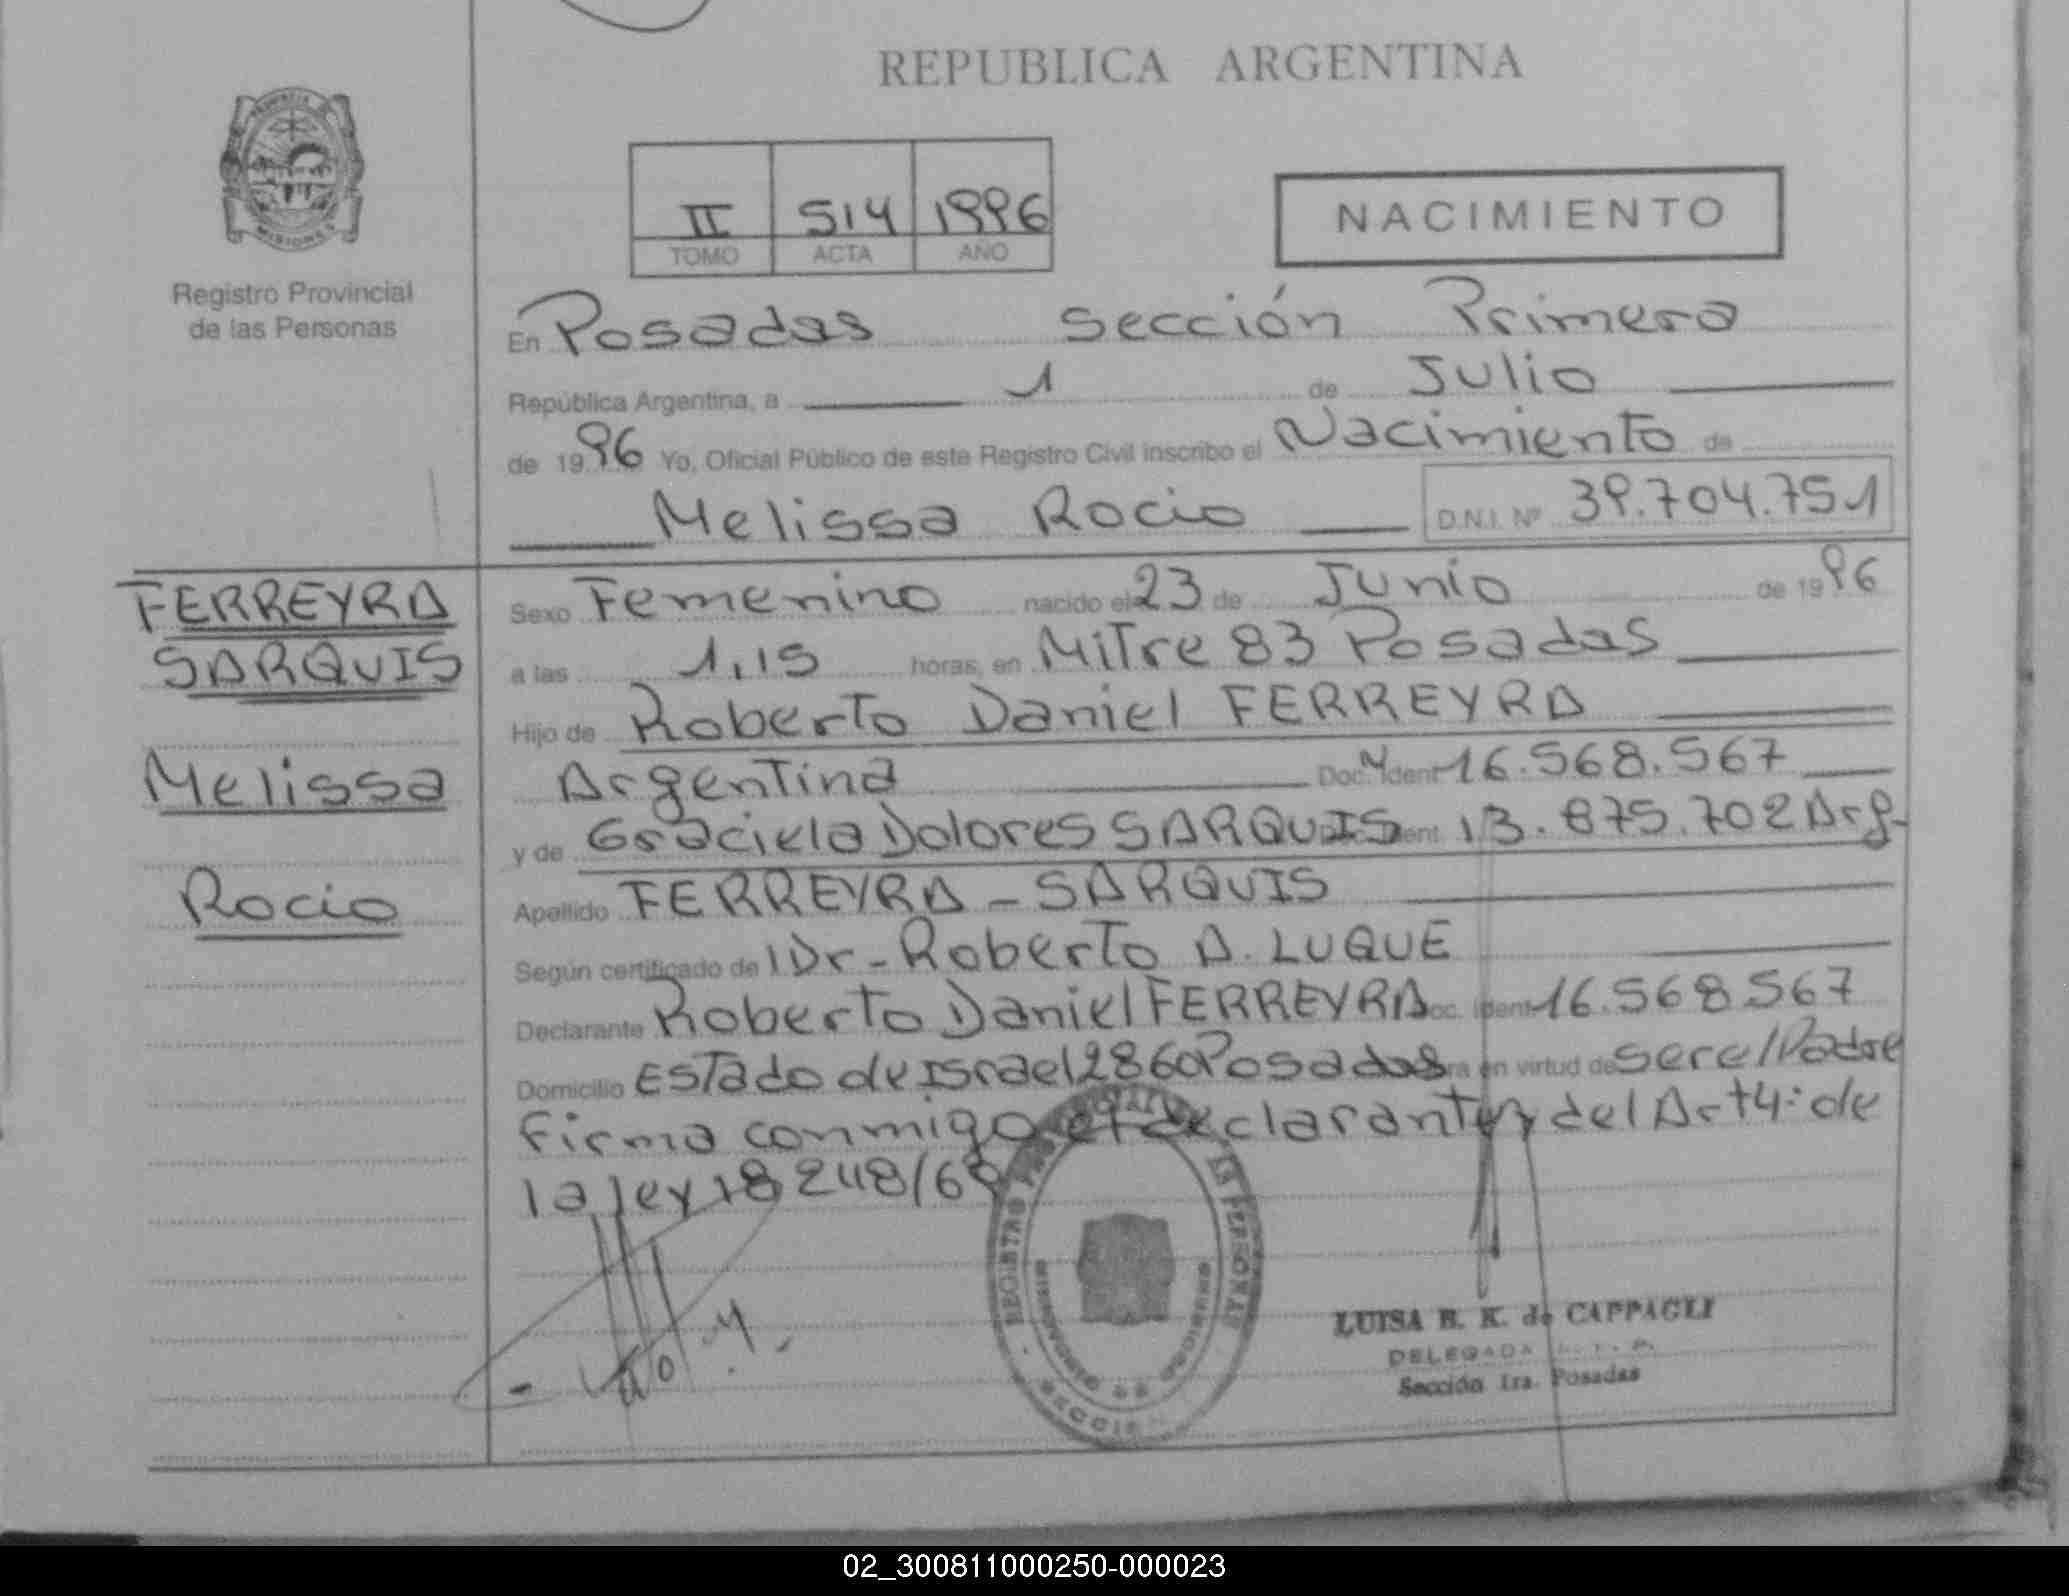 REPUBLICA ARGENTINA
PROVINCIA DE
MISIONES
Registro Provincial
de las Personas
II 514 1996
TOMO ACTA AÑO
NACIMIENTO
En Posadas Sección Primera
República Argentina, a 1 de Julio
de 1996 Yo, Oficial Público de este Registro Civil inscribo el Nacimiento de
Melissa Rocio D.N.I. Nº 39.704.751
FERREYRA
SARQUIS
Melissa
Rocio
Sexo Femenino nacido el 23 de Junio de 1996
a las 1,15 horas, en Mitre 83 Posadas
Hijo de Roberto Daniel FERREYRA
Argentina Doc. Ident 16.568.567
y de Graciela Dolores SARQUIS ent. 13.875.702 Arg-
Apellido FERREYRA - SARQUIS
Según certificado de Dr- Roberto A. LUQUE
Declarante Roberto Daniel FERREYRA Doc. Ident 16.568567
Domicilio Estado de Israel 2860 Posadas en virtud de ser el Padre
Firma conmigo el declarante del Art 4: de
la ley 18248/69
REGISTRO PROVINCIAL DE LAS PERSONAS
MISIONES
LUISA B. K. de CAPPAGLI
DELEGADA
Sección 1ra. Posadas
02_300811000250-000023